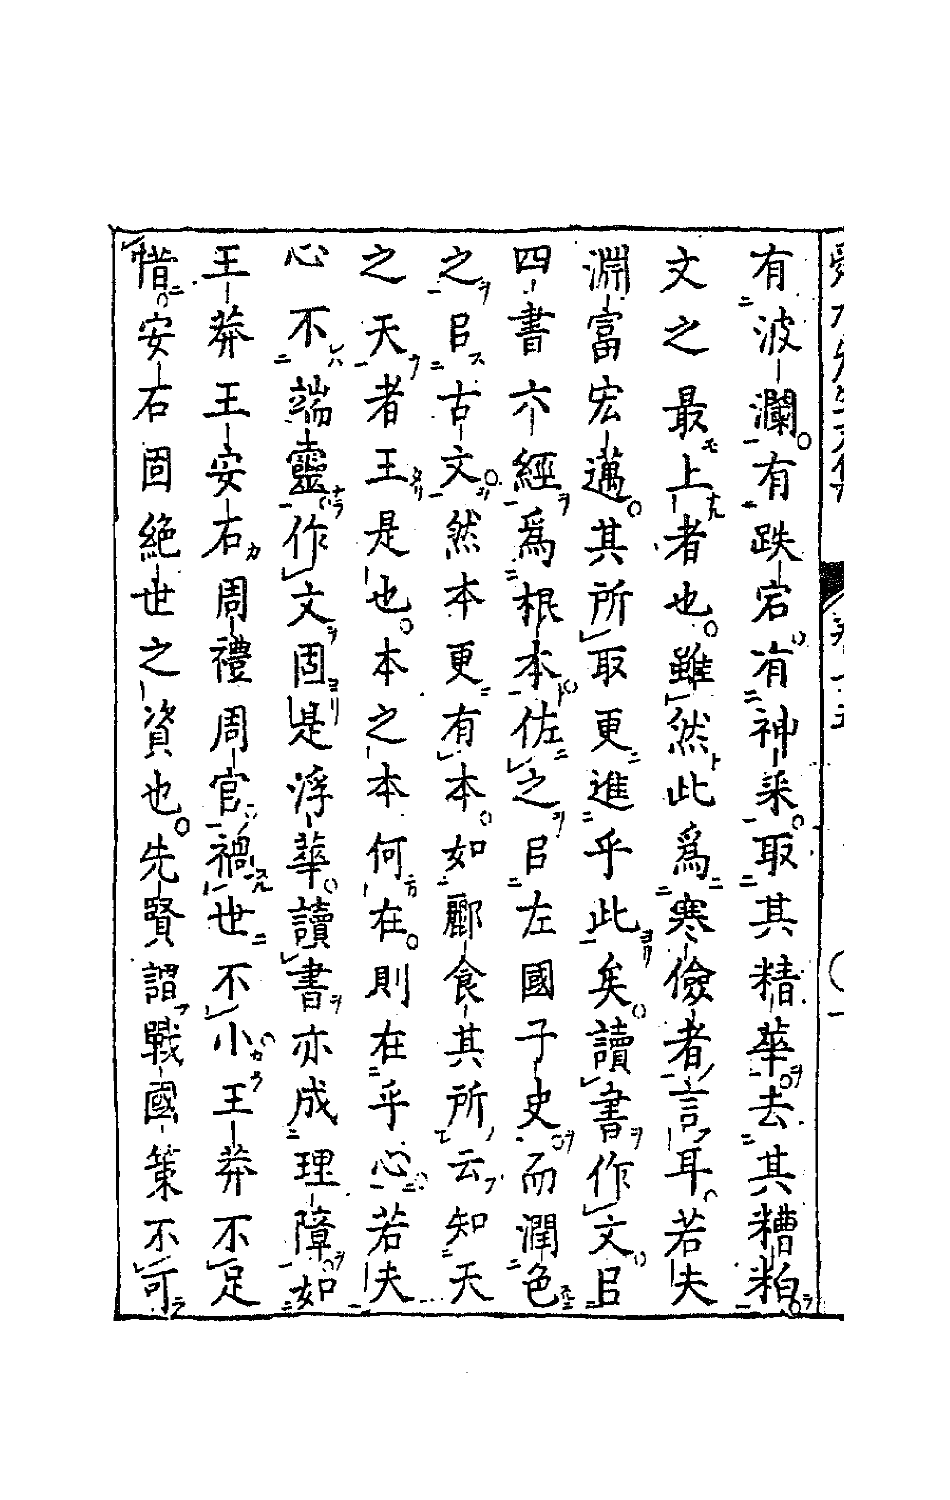 有波瀾。有跌宕。有神采。取其精華。去其糟粕。
文之最上者也。雖然此爲寒儉者言耳。若夫
淵富宏邁。其所取更進乎此矣。讀書作文。㠯
四書六經爲根本。佐之㠯左國子史。而潤色
之㠯古文。然本更有本。如酈食其所云知天
之天者王是也。本之本何在。則在乎心。若夫
心不端靈作文固是浮華。讀書亦成理障。如
王莽王安石周禮周官禍世不小。王莽不足
惜。安石固絕世之資也。先賢謂戰國策不可